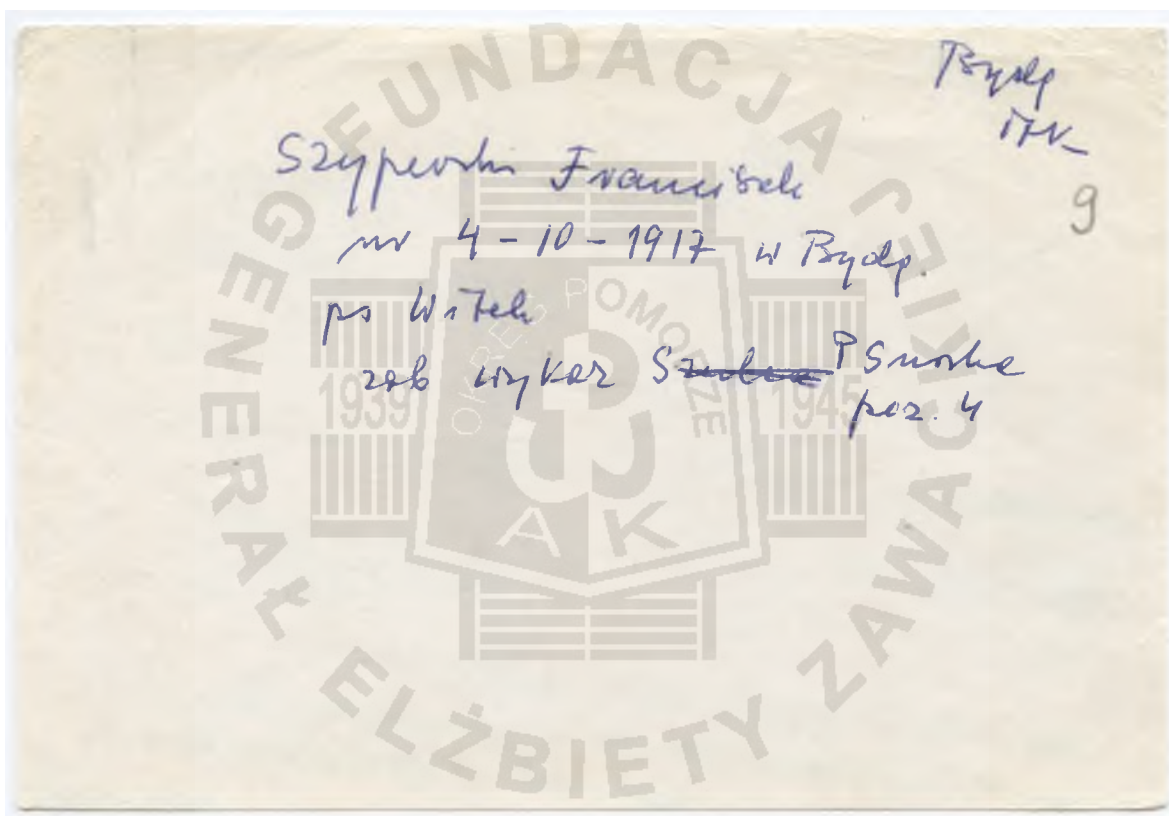 Bydg
9
Szyperski Franciszek
ur 4-10-1917 w Bydg.
ps Witek
zob wykaz P Smorka
poz. 4
FUNDACJA GENERAŁ ELŻBIETY ZAWACKIEJ
OKRĘG POMORZE
1939 1945
AK